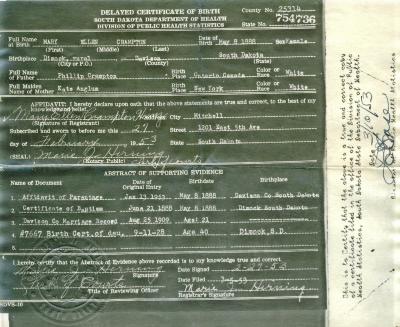 DELAYED CERTIFICATE OF BIRTH
SOUTH DAKOTA DEPARTMENT OF HEALTH
DIVISION OF PUBLIC HEALTH STATISTICS
County No. 25314
State No. 754736
Full Name at Birth MARY ELLEN CRAMPTON
(First) (Middle) (Last)
Birth Date May 8 1888 Sex Female
Birthplace Dimock, rural Davison South Dakota
(City or P.O.) (County) (State)
Full Name of Father Phillip Crampton Birth Place Ontario Canada Color or Race White
Full Maiden Name of Mother Kate Anglum Birth Place New York Color or Race White
AFFIDAVIT: I hereby declare upon oath that the above statements are true and correct, to the best of my knowledge and belief.
(Signature of Registrant)
City Mitchell
Subscribed and sworn to before me this 27
Street 1201 East 5th Ave
day of February 1953
State South Dakota
(SEAL) Marie J. Herning
(Notary Public)
ABSTRACT OF SUPPORTING EVIDENCE
Name of Document Date of Original Entry Birthdate Birthplace
1. Affidavit of Parentage Jan 13 1953 May 8 1888 Davison Co South Dakota
2. Certificate of Baptism June 21 1888 May 8 1888 Dimock South Dakota
3. Davison Co Marriage Record Aug 25 1909 Age: 21
4. #7667 Birth Cert. of dau. 9-11-28 Age 40 Dimock, S.D.
I hereby certify that the Abstract of Evidence above recorded is to my knowledge true and correct.
Signature
Date Signed 2-27-53
Clerk of Courts
Title of Reviewing Officer
Date Filed 3-5-53
Marie J. Herning
Registrar's Signature
SDVS-10
This is to Certify that the above is a true and correct copy of a certificate filed in the office of the Division of Public Health Statistics, South Dakota State Department of Health.